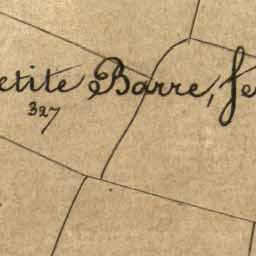 etite Barre, fe
327